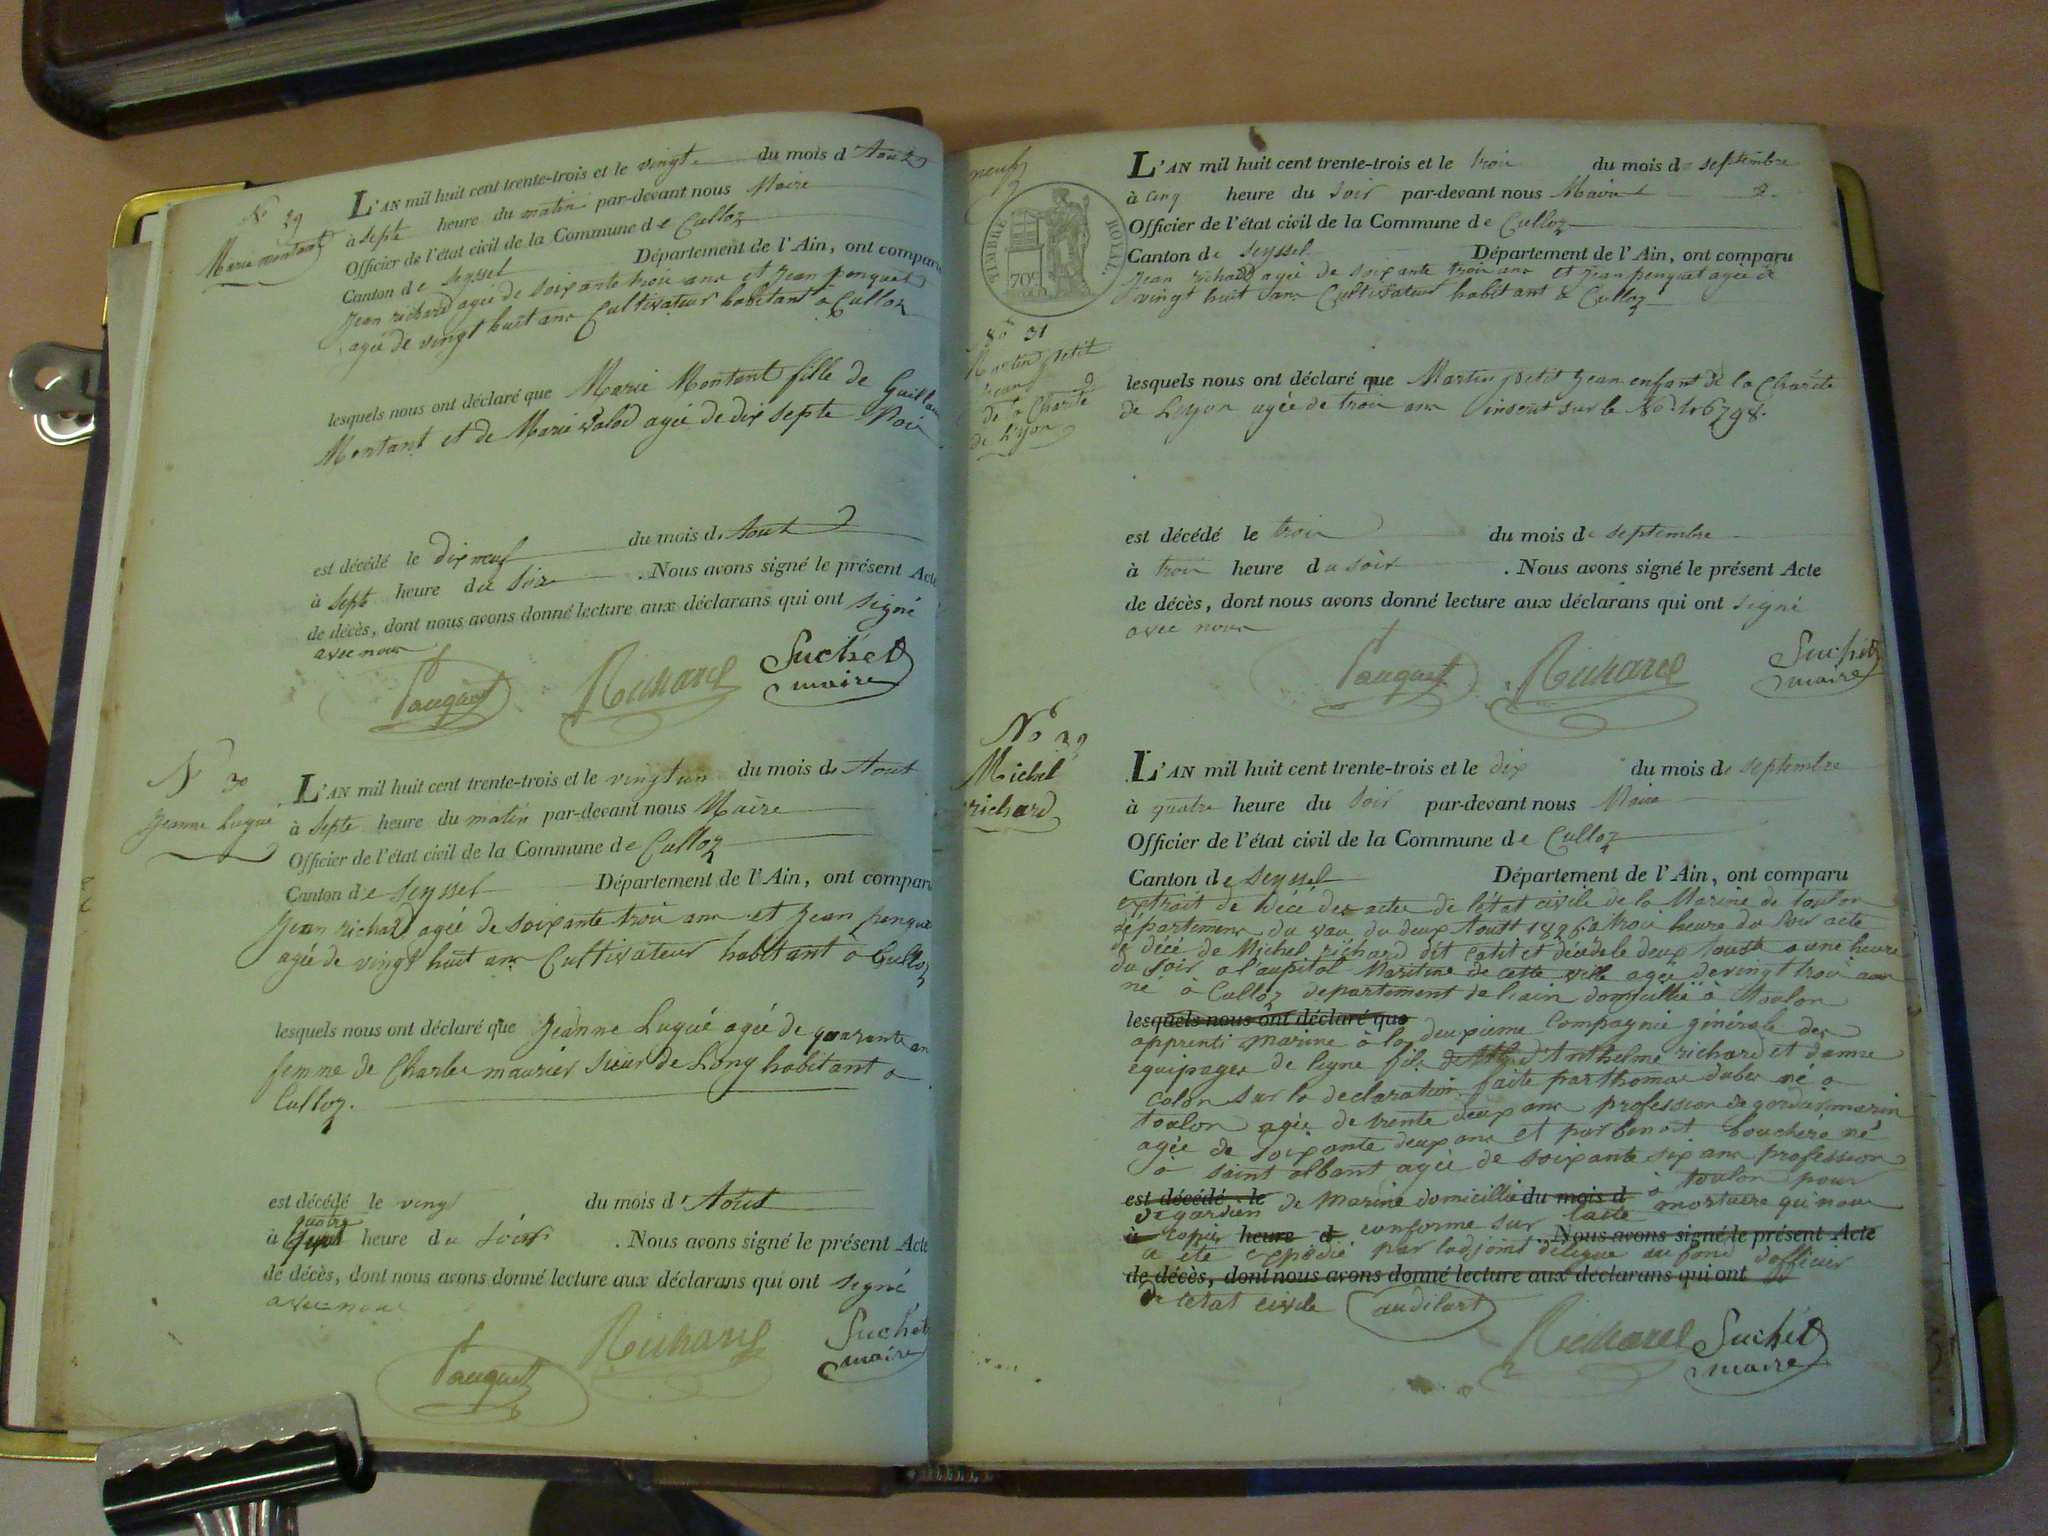 No 29
Marie montant
L'AN mil huit cent trente-trois et le vingt du mois d Aout
à septe heure du matin par-devant nous Maire
Officier de l'état civil de la Commune de Culloz
Canton de Seyssel Département de l'Ain, ont comparu
Jean richard agée de soixante trois ans et Jean penquet
agée de vingt huit ans Cultivateur habitant à Culloz
lesquels nous ont déclaré que Marie Montant fille de Guillau
Montant et de Marie agée de dix septe Moi
est décédé le dix neuf du mois d Aout
à Septe heure du Soir . Nous avons signé le présent Acte
de décès, dont nous avons donné lecture aux déclarans qui ont signé
avec nous
Pauquet Richard Suchet
maire
N° 30
Jeanne Lugué
L'AN mil huit cent trente-trois et le vingt un du mois de Aout
à Septe heure du matin par-devant nous Maire
Officier de l'état civil de la Commune de Culloz
Canton de Seyssel Département de l'Ain, ont comparu
Jean richard agée de soixante trois ans et Jean penque
agée de vingt huit ans Cultivateur habitant à Culloz
lesquels nous ont déclaré que Jeanne Lugué agée de quarante an
femme de Charle maurier Sieur de Long habitant a
Culloz.
est décédé le vingt du mois d'Aout
quatre
à heure du Soir . Nous avons signé le présent Acte
de décès, dont nous avons donné lecture aux déclarans qui ont signé
avec nous
Pauquet Richard Suchet
maire
neuf
TIMBRE ROYAL
70c
L'AN mil huit cent trente-trois et le trois du mois de septembre
à cinq heure du soir par-devant nous Maire
Officier de l'état civil de la Commune de Culloz
Canton de Seyssel Département de l'Ain, ont comparu
Jean richard agée de soixante trois ans et Jean penquet agée de
vingt huit ans Cultivateur habitant à Culloz
No 31
Martin petit
Jean
de la Charité
de Lyon
lesquels nous ont déclaré que Martin petit Jean enfant de la Charité
de Lyon agée de trois ans inscrit sur le No 146798.
est décédé le trois du mois de septembre
à trois heure du soir . Nous avons signé le présent Acte
de décès, dont nous avons donné lecture aux déclarans qui ont signé
avec nous
Pauquet Richard Suchet
maire
No 32
Michel
richard
L'AN mil huit cent trente-trois et le dix du mois de septembre
à quatre heure du Soir par-devant nous Maire
Officier de l'état civil de la Commune de Culloz
Canton de Seyssel Département de l'Ain, ont comparu
extrait de décé des actes de l'état civile de la Marine de toulon
département du var du deux Aoutt 1826 a trois heure du soir acte
de décé de Michel richard dit et décédé le deux Aoutt a une heure
du soir a l'aupital Maritime de cette ville agée de vingt trois ans
né à Culloz departement de l'ain domicillié à Toulon
lesquels nous ont déclaré que
apprenti marine à la deuxieme Compagnie générale des
equipages de ligne fils d'Anthelme richard et d'anne
Colon sur la declaration faite par thomas duber né a
toulon agée de trente deux ans profession de marin
agée de soixante deux ans et par benoit bouchere né
à saint albant agée de soixante six ans profession
est décédé le de Marine domicillié du mois d à toulon pour
de gardien l'acte mortuere qui nous
à copier heure d conforme sur Nous avons signé le présent Acte
a été expédié par l'adjoint déléque au fond d'officier
de décès, dont nous avons donné lecture aux déclarans qui ont
De l'etat civile audibert
Richard Suchet
maire